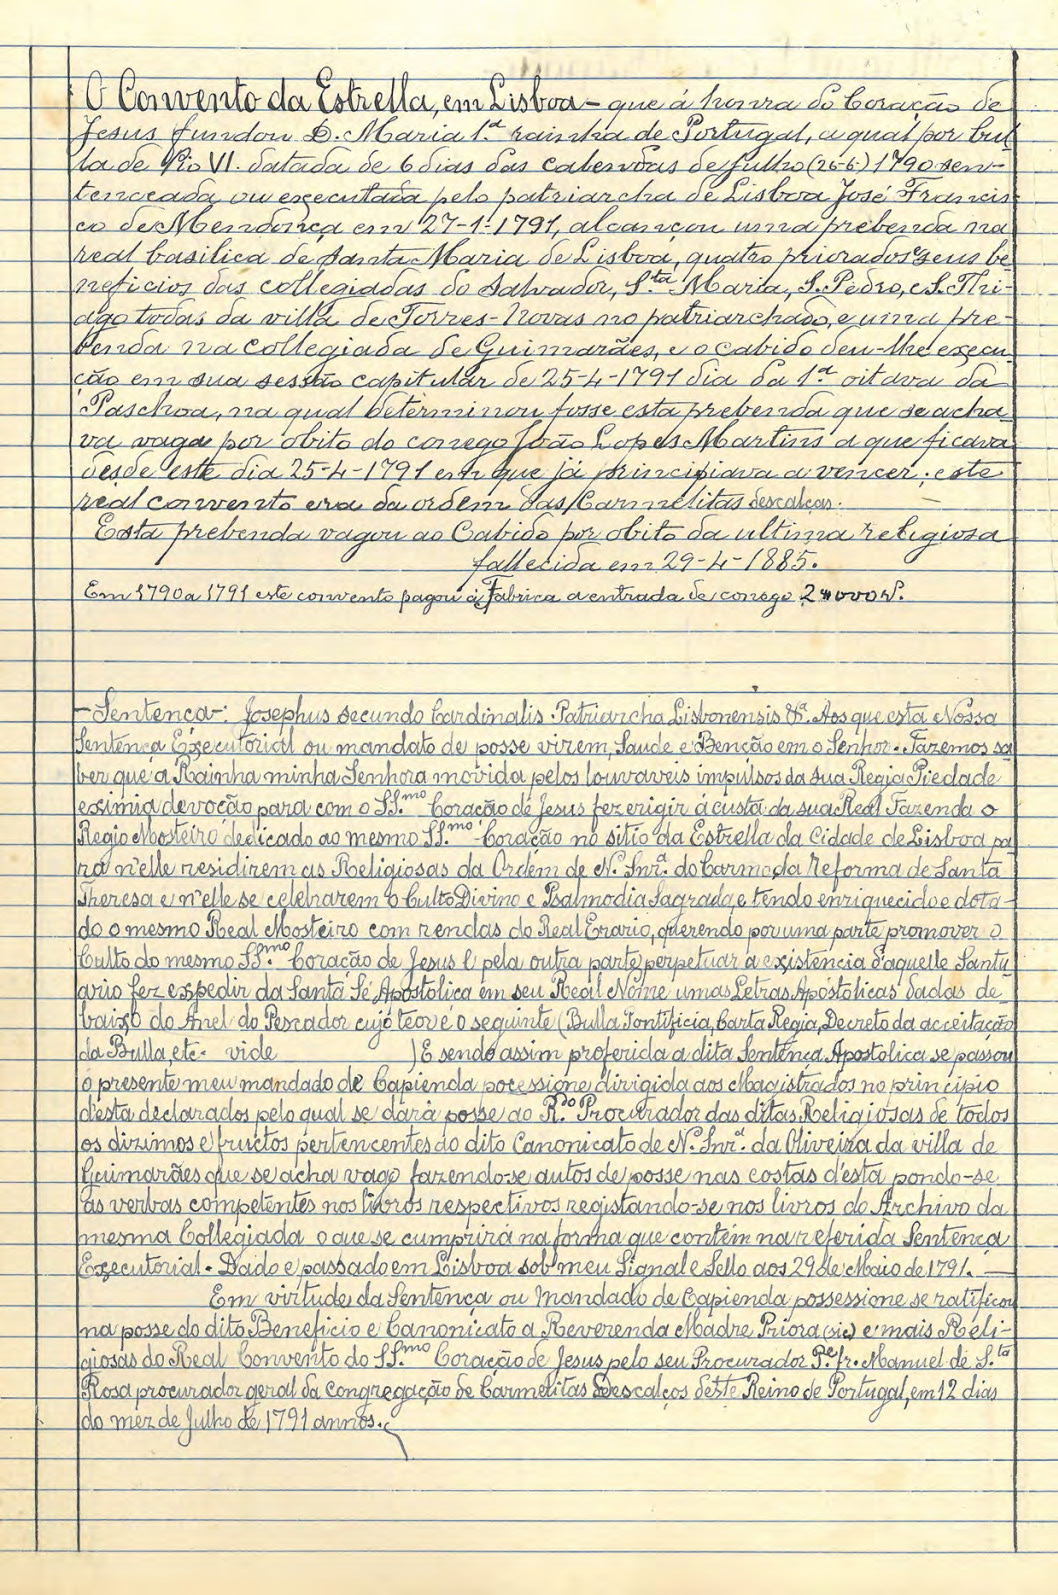 O Convento da Estrella, em Lisboa – que á honra do Coração de
Jesus fundou D. Maria 1.ª rainha de Portugal, a qual por bul-
la de Pio VI. datada de 6 dias das calendas de Julho (26-6-) 1790 sen-
tenceada ou executada pelo patriarcha de Lisboa José Francis-
co de Mendonça em 27-1-1791, alcançou uma prebenda na
real basilica de Santa Maria de Lisboa, quatro priorados e seus be-
neficios das collegiadas do Salvador, S.ta Maria, S. Pedro, e S. Thi-
ago todas da villa de Torres-Novas no patriarchado, e uma pre-
benda na collegiada de Guimarães, e o cabido deu-lhe execu-
ção em sua sessão capitular de 25-4-1791 dia da 1.ª oitava da
Paschoa, na qual determinou fosse esta prebenda que se acha-
va vaga por obito do conego João Lopes Martins a que ficava
desde este dia 25-4-1791 em que já principiava a vencer; este
real convento era da ordem das Carmelitas descalças.
Esta prebenda vagou ao Cabido por obito da ultima religiosa
fallecida em 29-4-1885.
Em 1790 a 1791 este convento pagou á Fabrica a entrada de conego
– Sentença –: Josephus secundo Cardinalis Patriarcha Lisbonensis &ª. Aos que esta Nossa
Sentença Executorial ou mandato de posse virem, Saude e Benção em o Senhor. Fazemos sa-
ber que a Rainha minha Senhora movida pelos louvaveis impulsos da sua Regia Piedade
eximia devoção para com o SS.mo Coração de Jesus fez erigir á custa da sua Real Fazenda o
Regio Mosteiro dedicado ao mesmo SS.mo Coração no sitio da Estrella da Cidade de Lisboa pa-
ra n'elle residirem as Religiosas da Ordem de N. Snr.ª do Carmo da Reforma de Santa
Theresa e n'elle se celebrarem o Culto Divino e Psalmodia Sagrada, e tendo enriquecido e dota-
do o mesmo Real Mosteiro com rendas do Real Erario, querendo por uma parte promover o
Culto do mesmo SS.mo Coração de Jesus e pela outra parte perpetuar a existencia d'aquelle Santu-
ario fez expedir da Santa Sé Apostolica em seu Real Nome umas Letras Apostolicas dadas de-
baixo do Anel do Pescador cujo teor é o seguinte (Bulla Pontificia, Carta Regia, Decreto da acceitação
da Bulla, etc. vide ) E sendo assim proferida a dita Sentença Apostolica se passou
o presente meu mandado de Capienda pocessione dirigida aos Magistrados no principio
d'esta declarados pelo qual se dará posse ao R.do Procurador das ditas Religiosas de todos
os dizimos e fructos pertencentes ao dito Canonicato de N. Snr.ª da Oliveira da villa de
Guimarães que se acha vago fazendo-se autos de posse nas costas d'esta pondo-se
as verbas competentes nos livros respectivos registando-se nos livros do Archivo da
mesma Collegiada o que se cumprirá na forma que contém na referida Sentença
Executorial. Dado e passado em Lisboa sob meu Signal e Sello aos 29 de Maio de 1791. —
Em virtude da Sentença ou Mandado de Capienda possessione se ratificou
na posse do dito Beneficio e Canonicato a Reverenda Madre Priora (sic) e mais Reli-
giosas do Real Convento do SS.mo Coração de Jesus pelo seu Procurador P.e fr. Manuel de S.ta
Rosa procurador geral da congregação de Carmelitas Descalços deste Reino de Portugal, em 12 dias
do mez de Julho de 1791 annos.